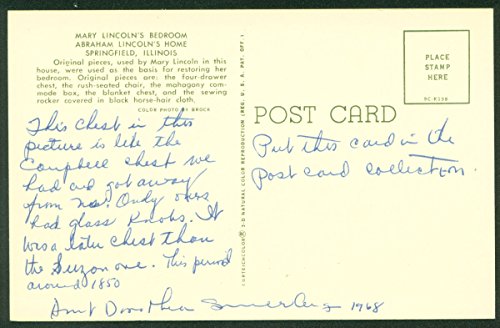 MARY LINCOLN'S BEDROOM
ABRAHAM LINCOLN'S HOME
SPRINGFIELD, ILLINOIS
Original pieces, used by Mary Lincoln in this
house, were used as the basis for restoring her
bedroom. Original pieces are: the four-drawer
chest, the rush-seated chair, the mahogany com-
mode box, the blanket chest, and the sewing
rocker covered in black horse-hair cloth.
COLOR PHOTO BY BROCK
This chest in this
picture is like the
Campbell chest we
had and got away
from us. Only ours
had glass knobs. It
was a later chest than
the one. This period
around 1850
Aunt Dorothea 1968
CURTEICHCOLOR ® 3-D NATURAL COLOR REPRODUCTION (REG. U. S. A. PAT. OFF.)
POST CARD
Put this card in the
post card collection.
PLACE
STAMP
HERE